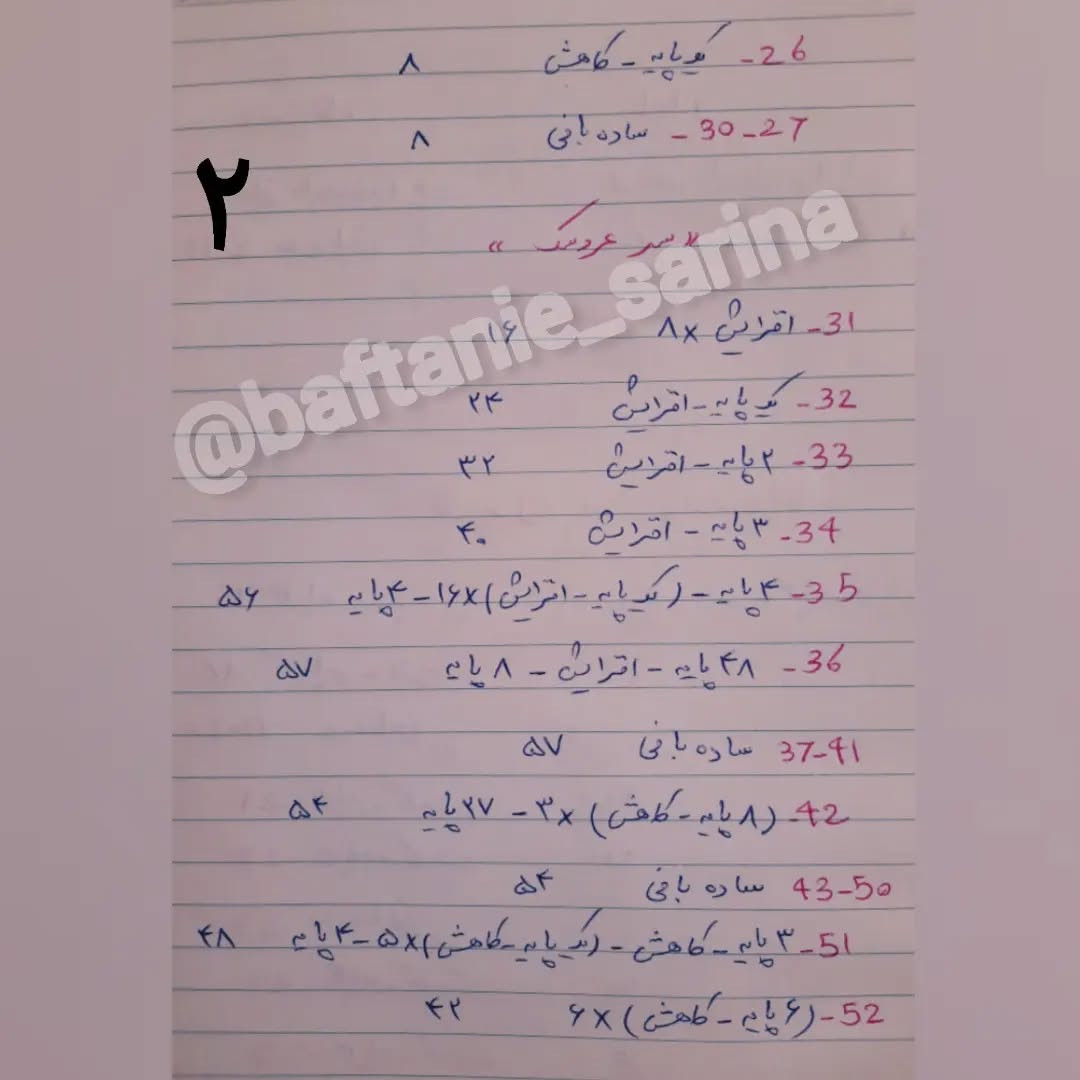 26- یک پایه - کاهش ۸
27-30 - ساده بافی ۸
۲
«سر عروسک»
@baftanie_sarina
31- افزایش ×۸ ۱۶
32- یک پایه - افزایش ۲۴
33- ۲ پایه - افزایش ۳۲
34- ۳ پایه - افزایش ۴۰
35- ۴ پایه - (یک پایه - افزایش)×۱۶ - ۴ پایه ۵۶
36- ۴۸ پایه - افزایش - ۸ پایه ۵۷
37-41 ساده بافی ۵۷
42- (۸ پایه - کاهش)×۳ - ۲۷ پایه ۵۴
43-50 ساده بافی ۵۴
51- ۳ پایه - کاهش - (یک پایه - کاهش)×۵ - ۴ پایه ۴۸
52- (۶ پایه - کاهش)×۶ ۴۲